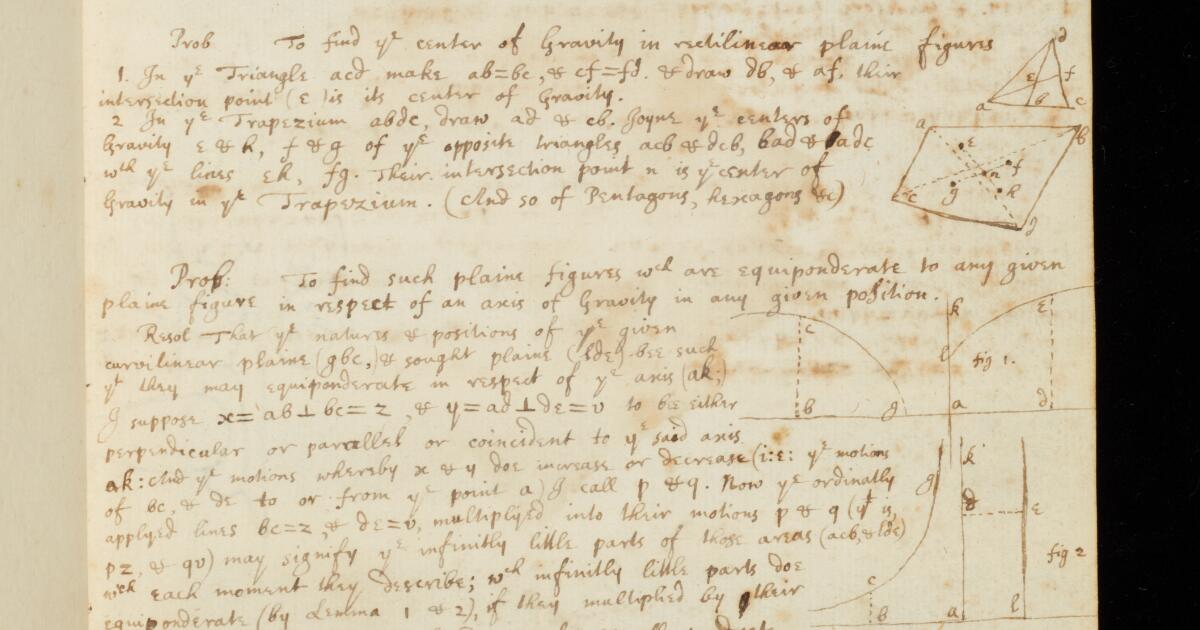 Prob To find yͤ center of Gravity in rectilinear plaine figures
1. In yͤ Triangle acd make ab=bc, & cf=fd. & draw db, & af, their
intersection point (e) is its center of Gravity.
2 In yͤ Trapezium abdc, draw ad & cb. Joyne yͤ centers of
Gravity e & h, f & g of yͤ opposite triangles acb & dcb, bad & adc
wᶜʰ yͤ lines eh, fg. Their intersection point n is yͤ center of
Gravity in yͤ Trapezium. (And so of Pentagons, hexagons &c)
Prob: To find such plaine figures wᶜʰ are equiponderate to any given
plaine figure in respect of an axis of Gravity in any given position.
Resol That yͤ natures & positions of yͤ given
curvilinear plaine (gbc,) & sought plaine (lde) bee such
yͭ they may equiponderate in respect of yͤ axis (ak;)
I suppose x=ab⊥bc=z, & y=ad⊥de=v to be either
perpendicular or parallel or coincident to yͤ said axis
ak: And yͤ motions whereby x & y doe increase or decrease (i:e: yͤ motions
of bc, & de to or from yͤ point a) I call p & q. Now yͤ ordinatly
applyed lines bc=z, & de=v, multiplyed into their motions p & q (yͭ is,
pz, & qv) may signify yͤ infinitly little parts of those areas (acb, & lde)
wᶜʰ each moment they describe; wᶜʰ infinitly little parts doe
equiponderate (by Lemma 1 & 2), if they multiplyed by their
d
e
f
a
b
c
a
b
e
f
n
h
g
c
d
c
b
g
k
e
l
fig 1.
a
d
g
k
d
e
fig 2
c
b
a
l